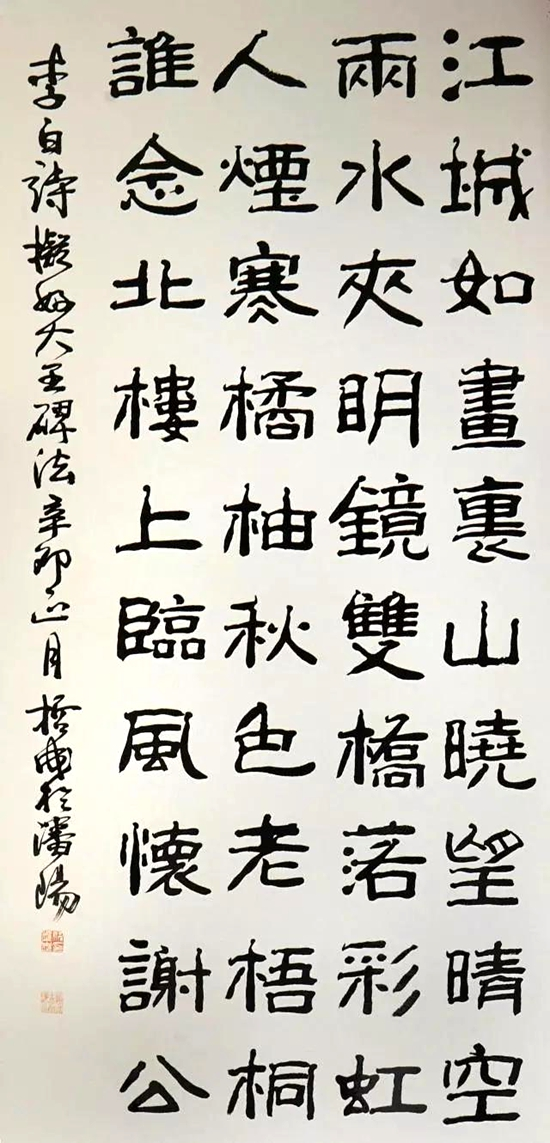 江城如畫裏山曉望晴空
兩水夾明鏡雙橋落彩虹
人煙寒橘柚秋色老梧桐
誰念北樓上臨風懷謝公
李白詩擬好大王碑法辛卯正月於瀋陽